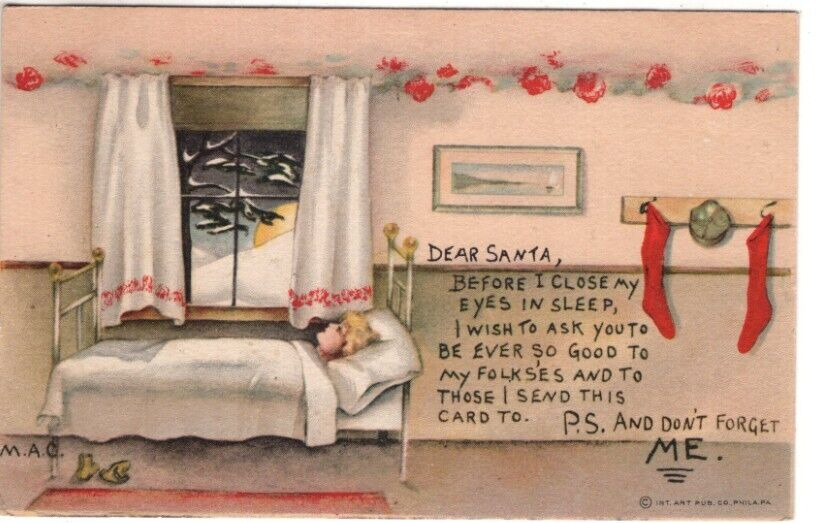 DEAR SANTA,
BEFORE I CLOSE MY
EYES IN SLEEP,
I WISH TO ASK YOU TO
BE EVER SO GOOD TO
MY FOLKSES AND TO
THOSE I SEND THIS
CARD TO. P.S. AND DON'T FORGET
ME.
M.A.C.
© INT. ART PUB. CO., PHILA. PA